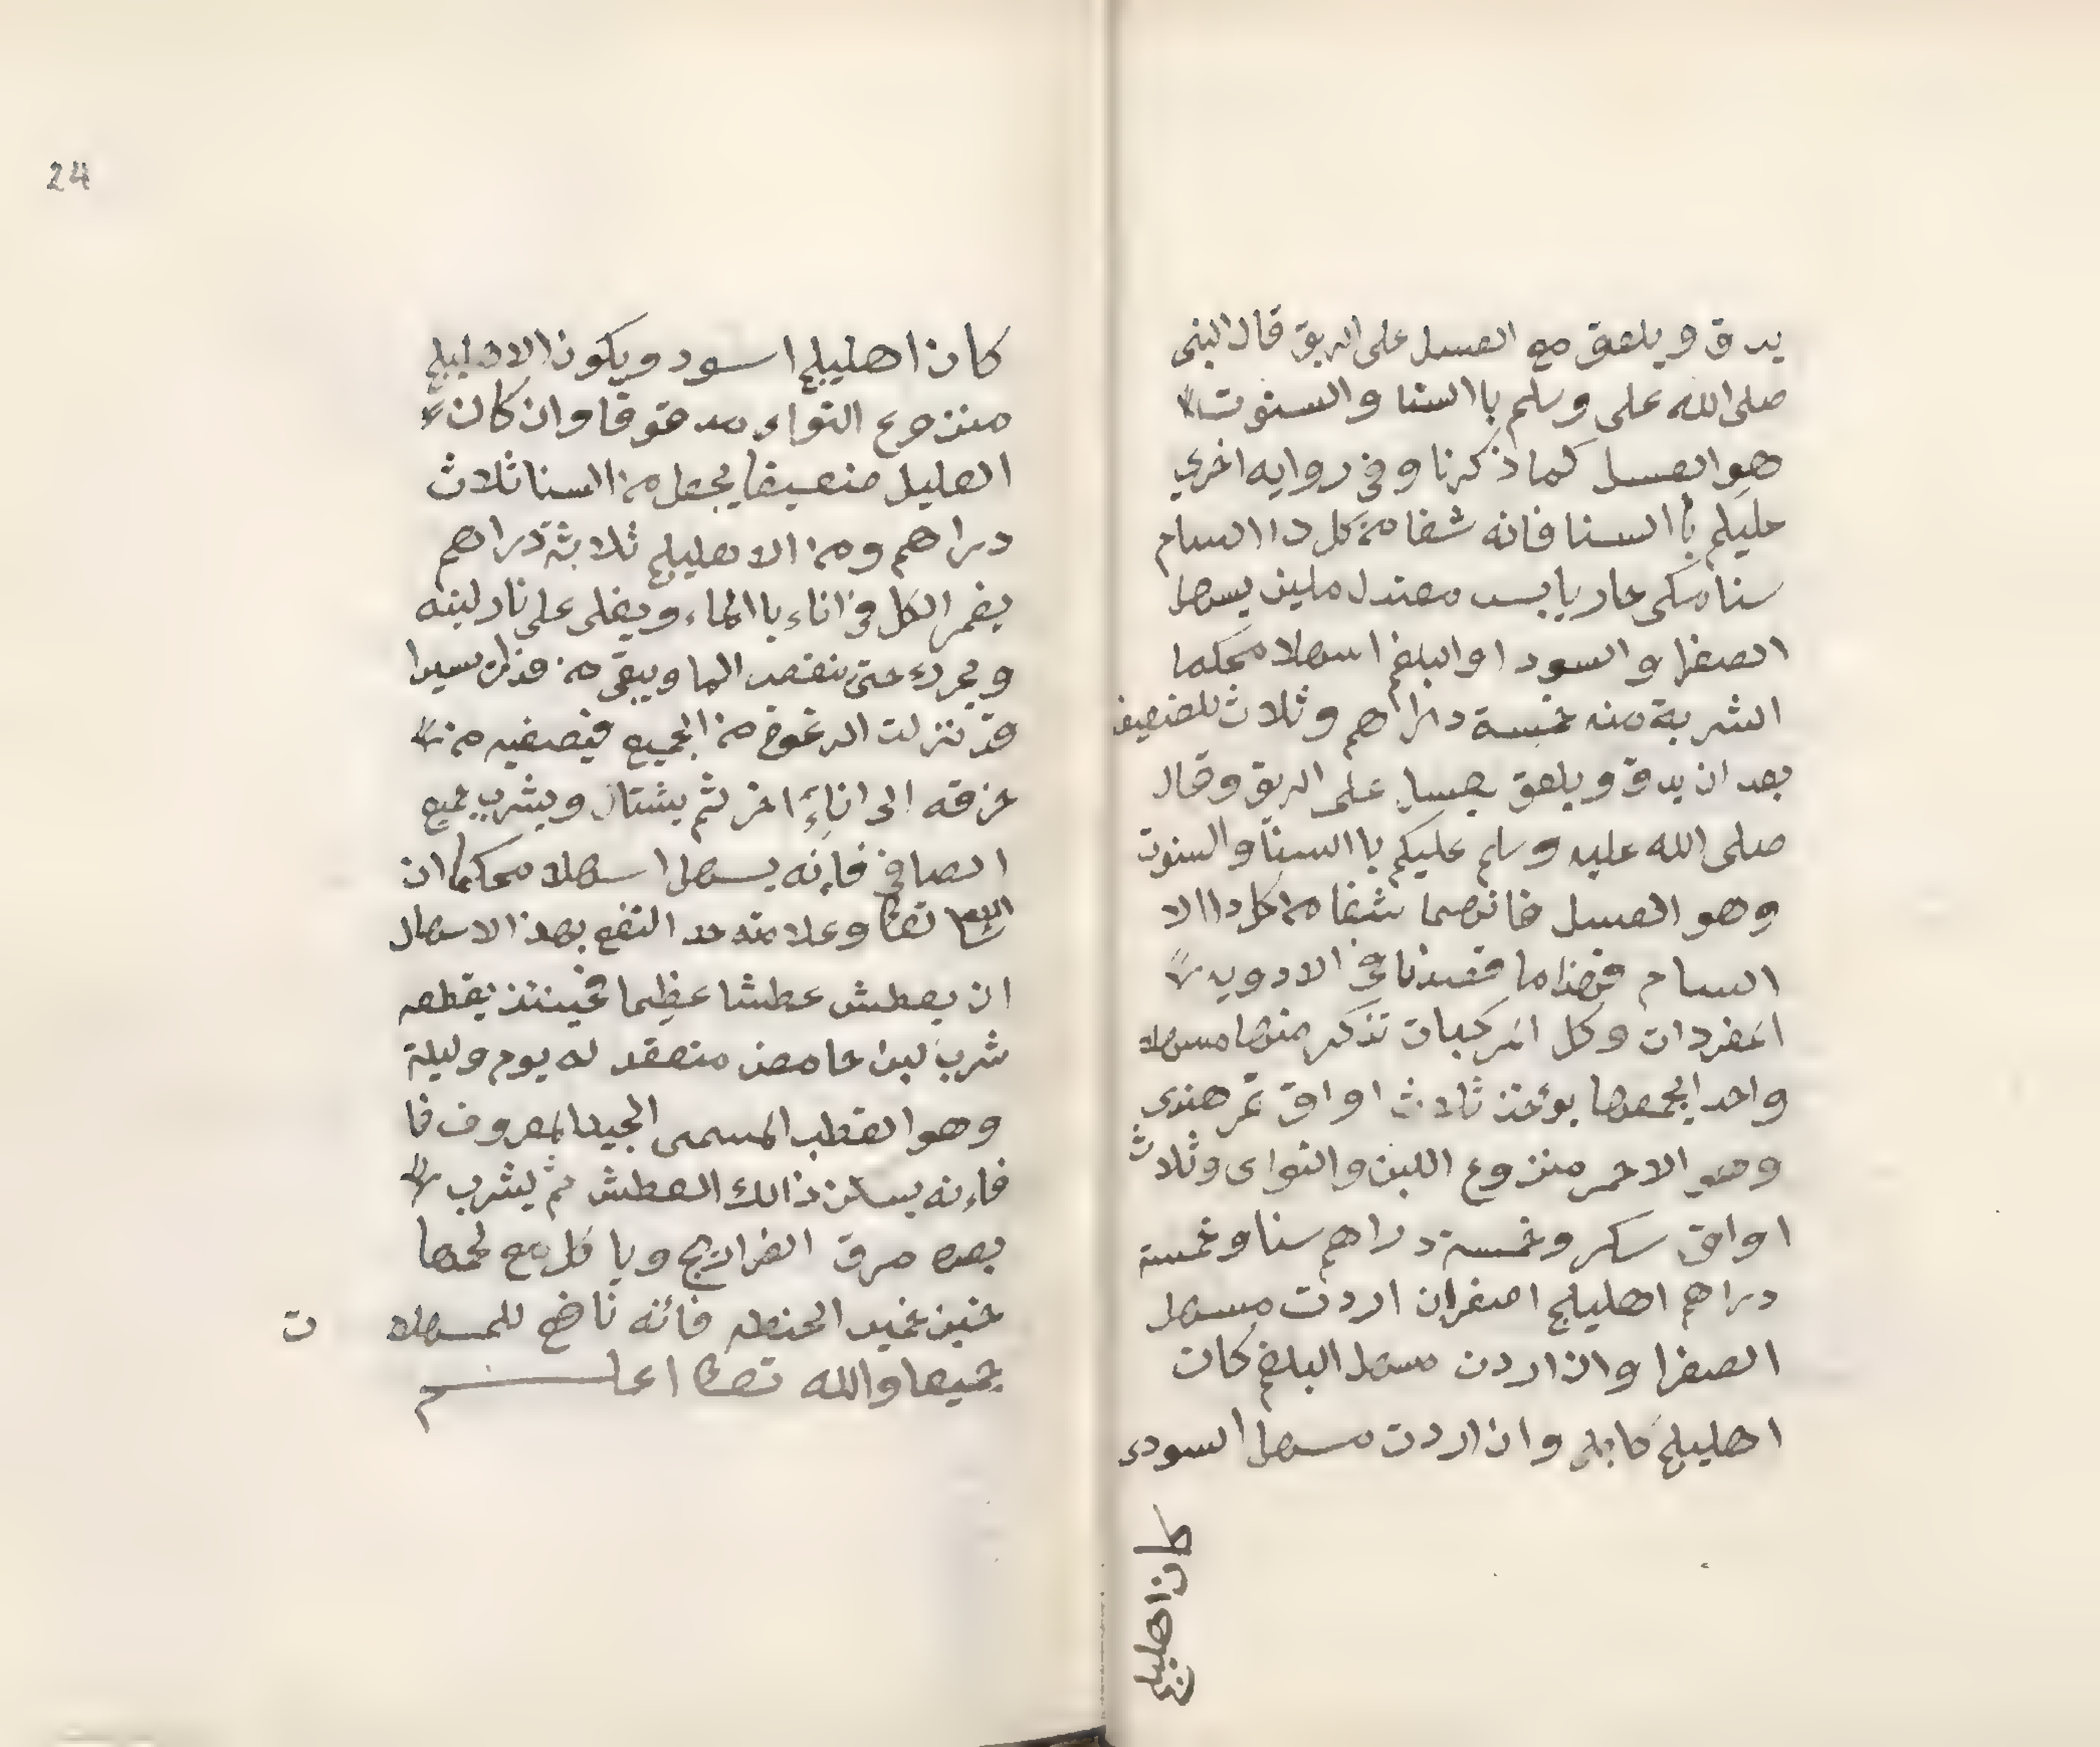 يدق ويلعق مع العسل على الريق قال النبى
صلى الله على وسلم باالسنا والسنوت
هو العسل كما ذكرنا وفي روايه اخري
عليكم باالسنا فانه شفا من كل داا السام
سنا مكى حار يابس معتدل ملين يسهل
الصفرا والسودا والبلغم اسهلا محكما
الشربة منه خمسة دراهم وثلاث للضعيف
بعد ان يدق ويلعق بعسل على الريق وقال
صلى الله عليه وسلم عليكم باالسنا والسنوت
وهو العسل فانهما شفا من كل داا الا
السام فهذا ما قصدنا في الادويه
المفردات وكل المركبات نذكر منها مسهلا
واحد ايجمعها يوءخذ ثلاث اواق تمر هندي
وهو الاحمر منزوع اللبن والنواى وثلاث
اواق سكر وخمسة دراهم سنا وخمسة
دراهم اهليلج اصفر ان اردت مسهل
الصفرا وان اردت مسهل البلغم كان
اهليلج كابلى وان اردت مسهل السودء
كان اهليلج
24
كان اهليلج اسود ويكون الاهليلج
منزوع النواء مدقوقا وان كان
العليل ضعيفا يجعل من السنا ثلاث
دراهم ومن الاهليلج ثلاثة دراهم
يغمر الكل في اناء باالماء ويغلى على نار لينه
حتى ينقص الما ويبقى منه يسيرا
قد نزلت الرغوة من الجميع فيصفيه من
خرقه الى اناءٍ اخر ثم يشتال ويشرب جميع
الصافي فاءنه يسهل اسهلا محكما ان
الله تعا وعلامته حد النفع بهذا الاسهال
ان يعطش عطشا عظيما فحينئذ يقطعه
شرب لبن حامض منعقد له يوم وليلة
وهو القطب المسمى الجيد المعروف فا
فاءنه يسكن ذالك العطش ثم يشرب
بعده مرق الفراريج وياكل مع لحمها
خبز خمير الحنطه فائنه نافع للمسهلا ت
جميعا والله تعا اعلم